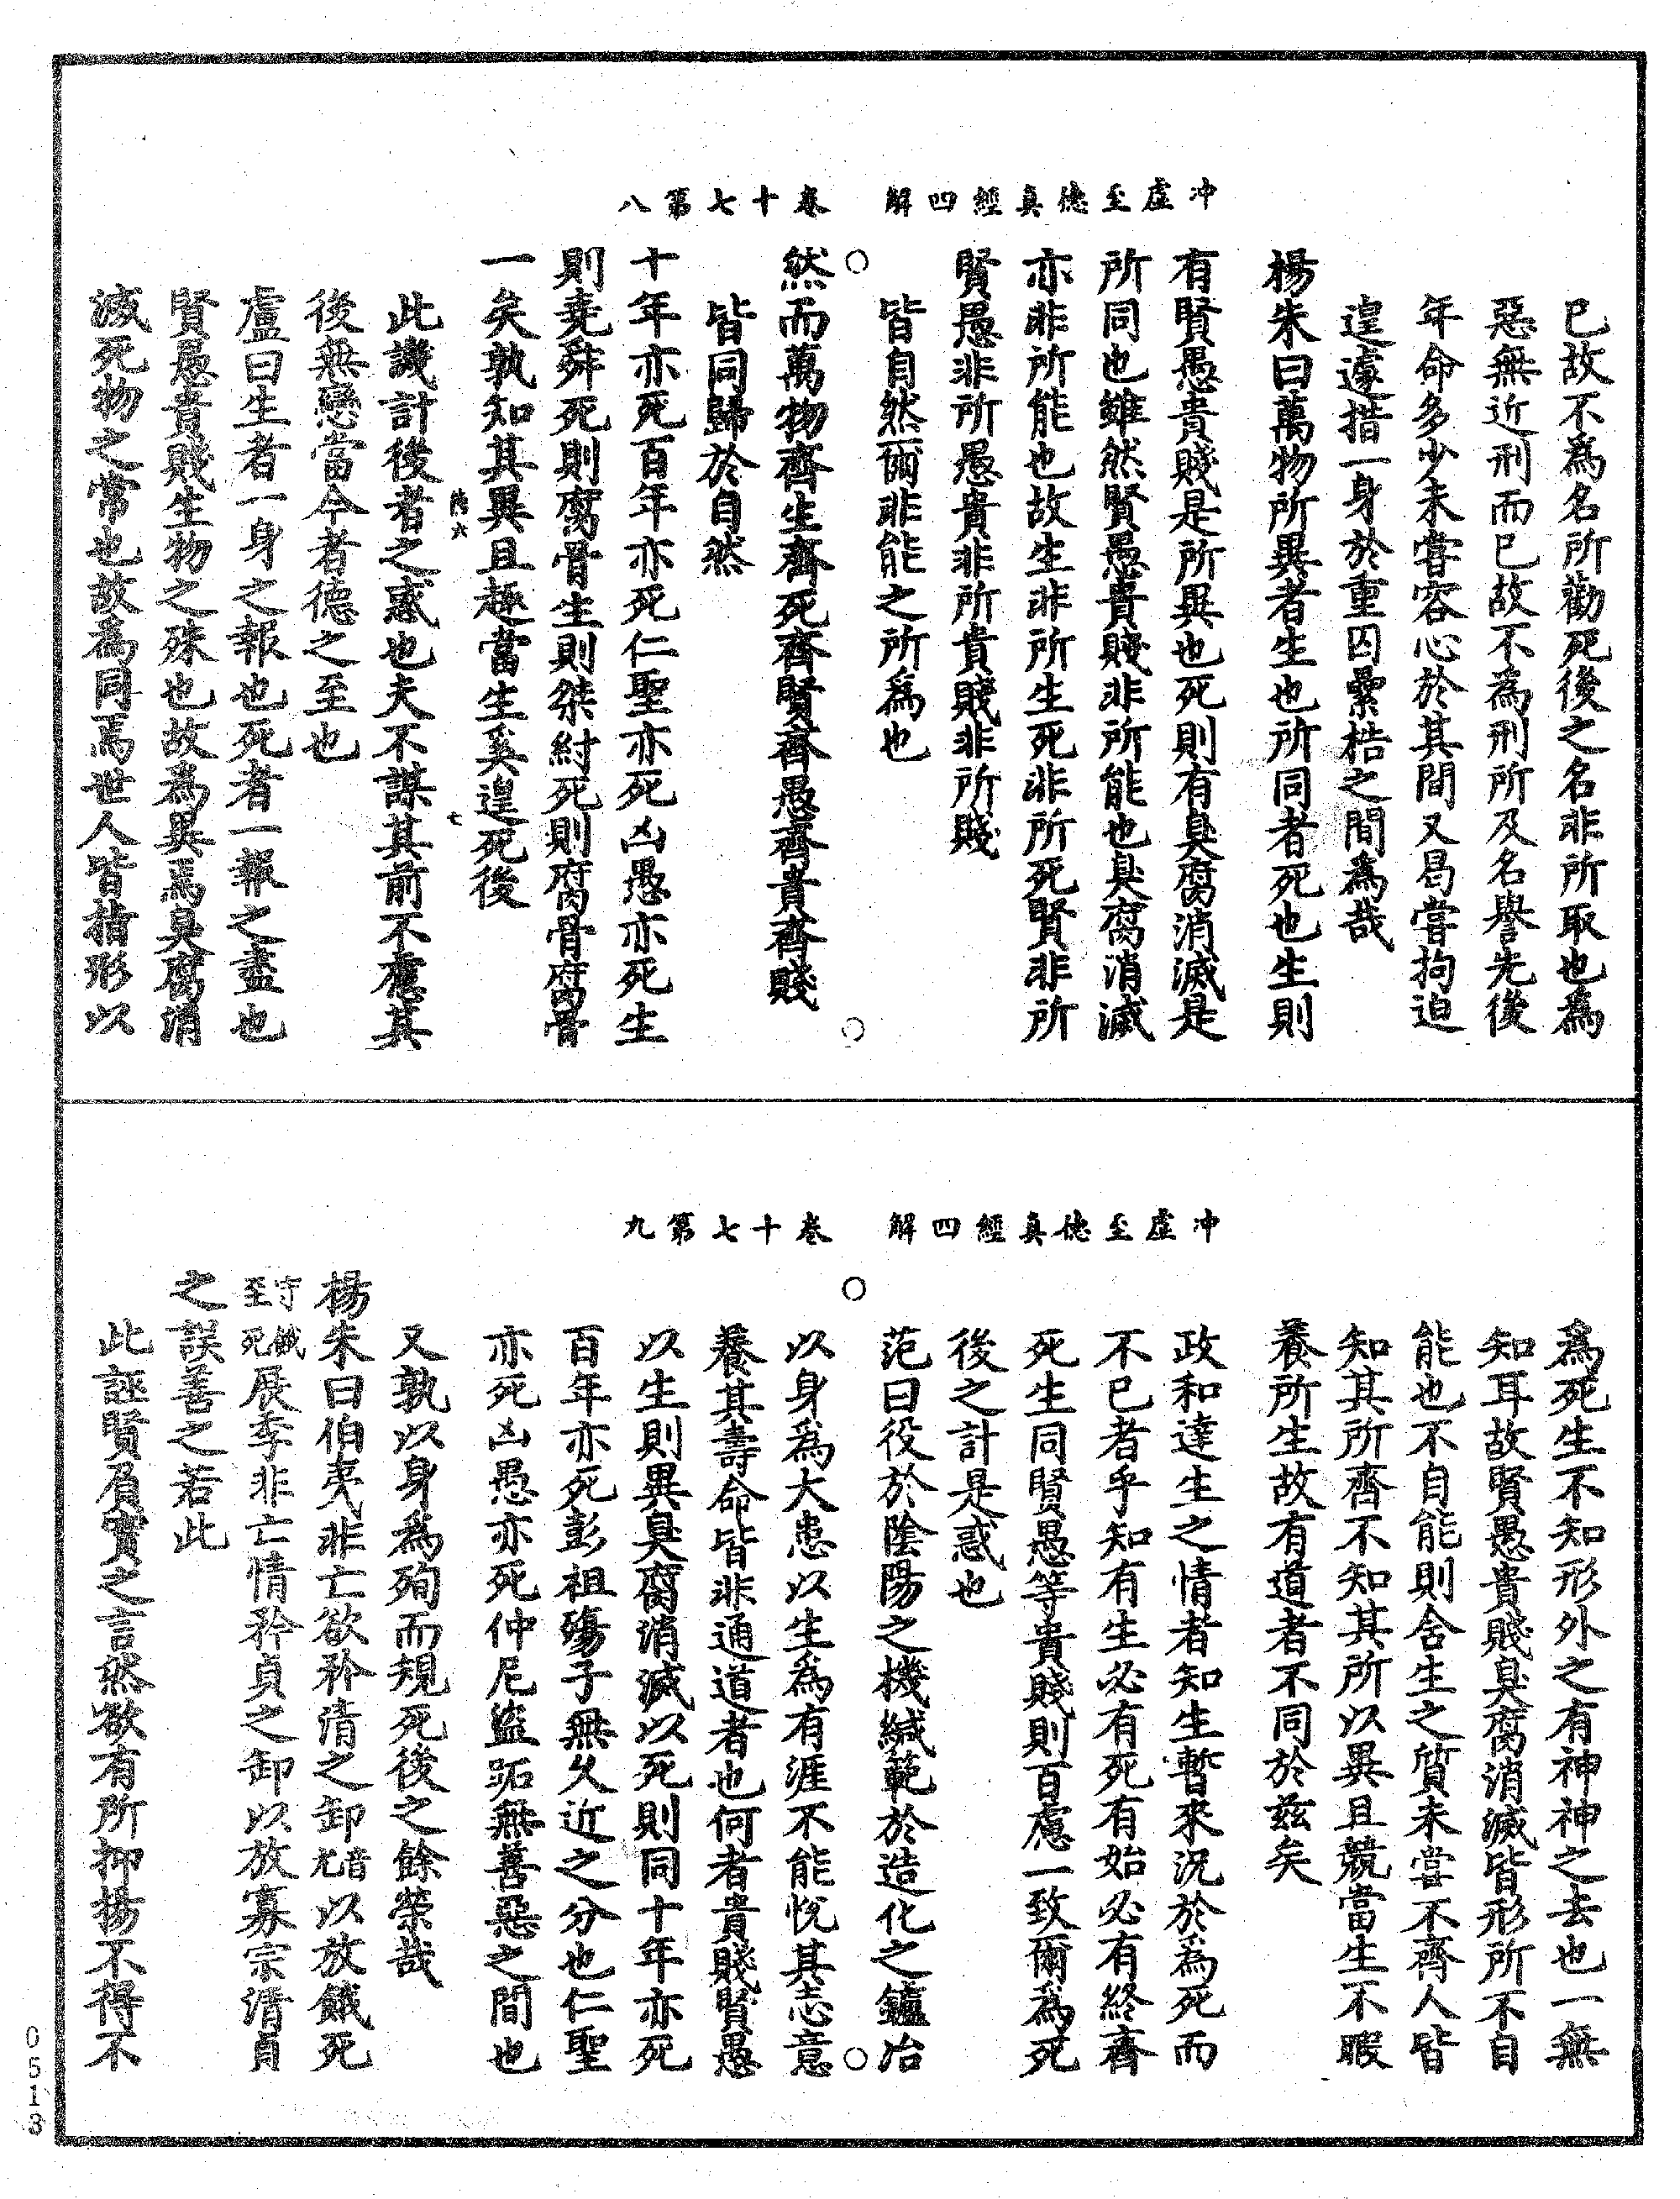 冲虛至德真經四解　卷十七第八
已故不為名所勸死後之名非所取也為
惡無近刑而已故不為刑所及名譽先後
年命多少未嘗容心於其間又曷嘗拘迫
遑遽措一身於重囚纍梏之間為哉
楊朱曰萬物所異者生也所同者死也生則
有賢愚貴賤是所異也死則有臭腐消滅是
所同也雖然賢愚貴賤非所能也臭腐消滅
亦非所能也故生非所生死非所死賢非所
賢愚非所愚貴非所貴賤非所賤
皆自然爾非能之所為也
然而萬物齊生齊死齊賢齊愚齊貴齊賤
皆同歸於自然
十年亦死百年亦死仁聖亦死凶愚亦死生
則堯舜死則腐骨生則桀紂死則腐骨腐骨
一矣孰知其異且趣當生奚遑死後
此譏計後者之惑也夫不謀其前不慮其
後無戀當今者德之至也
盧曰生者一身之報也死者一報之盡也
賢愚貴賤生物之殊也故為異焉臭腐消
滅死物之常也故為同焉世人皆指形以
冲虛至德真經四解　卷十七第九
為死生不知形外之有神神之去也一無
知耳故賢愚貴賤臭腐消滅皆形所不自
能也不自能則舍生之質未嘗不齊人皆
知其所齊不知其所以異且競當生不暇
養所生故有道者不同於茲矣
政和達生之情者知生暫來況於為死而
不已者乎知有生必有死有始必有終齊
死生同賢愚等貴賤則百慮一致爾為死
後之計是惑也
范曰役於陰陽之機緘範於造化之鑪冶
以身為大患以生為有涯不能悅其志意
養其壽命皆非通道者也何者貴賤賢愚
以生則異臭腐消滅以死則同十年亦死
百年亦死彭祖殤子無久近之分也仁聖
亦死凶愚亦死仲尼盜跖無善惡之間也
又孰以身為殉而規死後之餘榮哉
楊朱曰伯夷非亡欲矜清之卸音尤以放餓死
守餓至死展季非亡情矜貞之卸以放寡宗清貞
之誤善之若此
此誣賢負實之言然欲有所抑揚不得不
0513